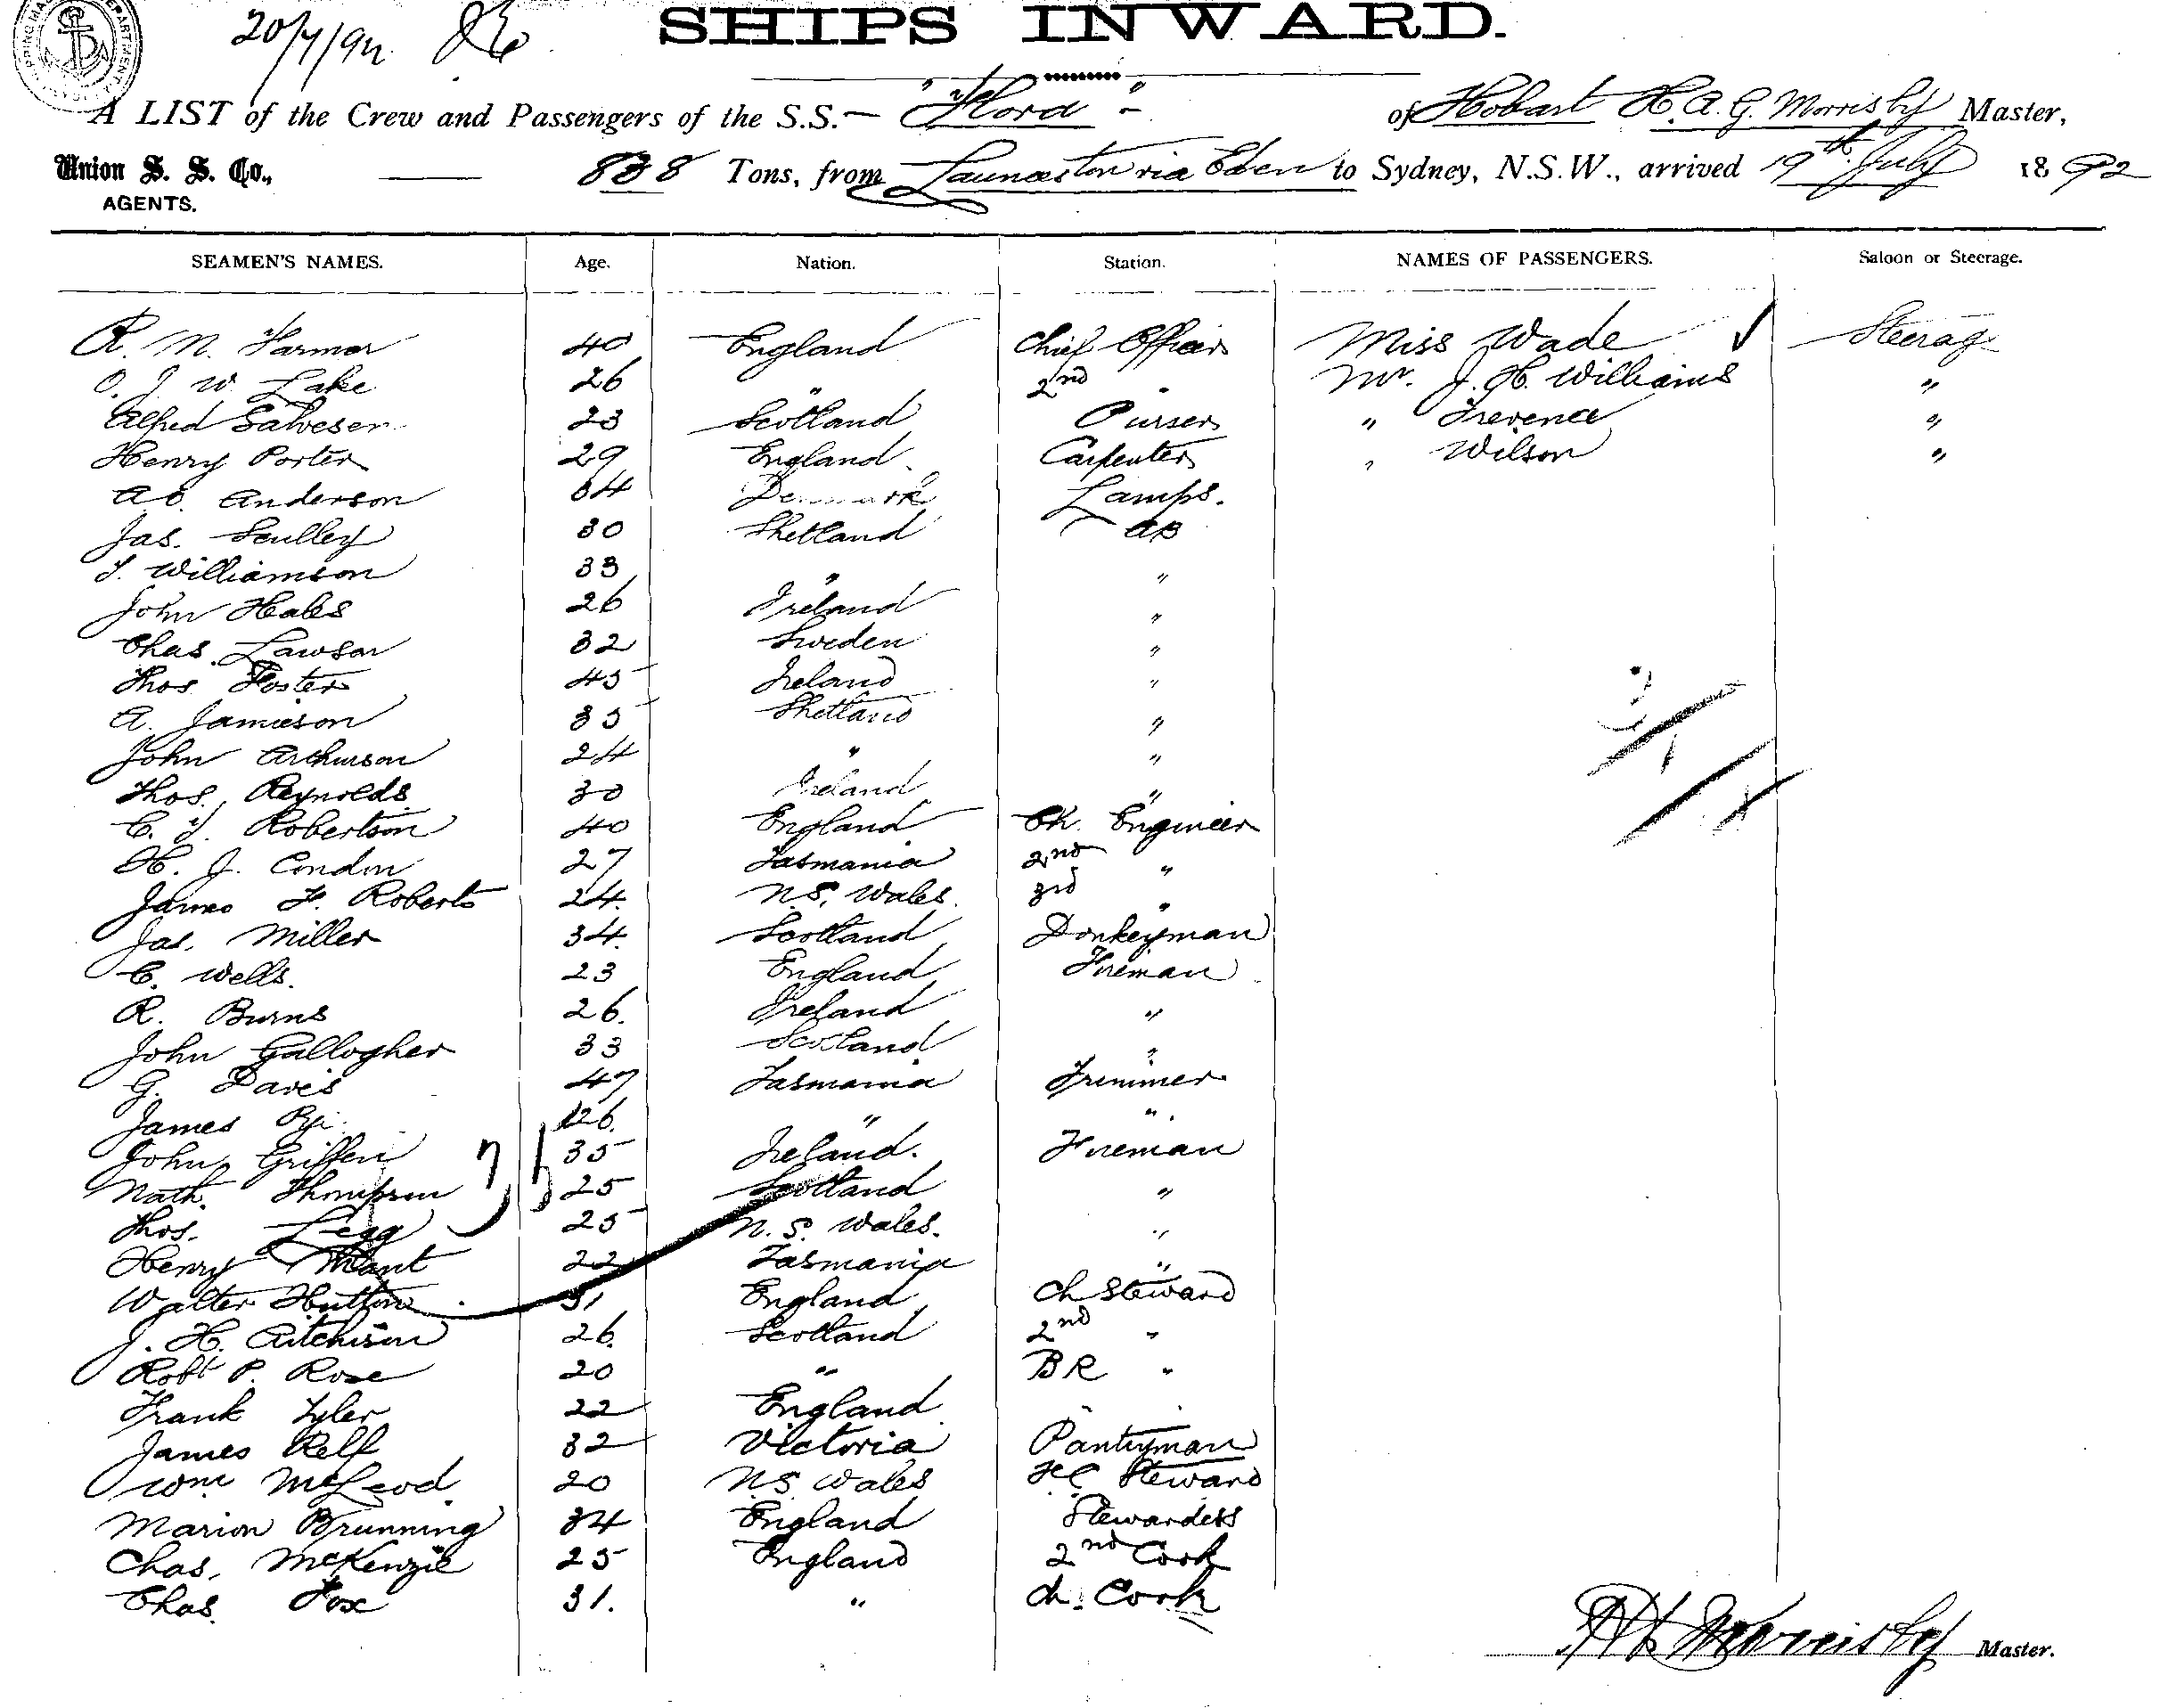 SHIPS INWARD.
20/7/92.
A LIST of the Crew and Passengers of the S.S.— "Flora" – of Hobart H. A. G. Morrisby Master,
Union S. S. Co., 838 Tons, from Launceston via Eden to Sydney, N.S.W., arrived 19th July 1892
AGENTS.
SEAMEN'S NAMES. Age. Nation. Station. NAMES OF PASSENGERS. Saloon or Steerage.
R. N. Farmer 40 England Chief Officer Miss Wade ✓ Steerage
O. J. W. Lake 26 " 2nd " Mr. J. H. Williams "
Alfred Salvesen 23 Scotland Purser " Treverice "
Henry Porter 29 England Carpenter " Wilson "
Anderson 34 Denmark Lamps.
Jas. Sculley 30 Shetland AB
J. Williamson 33 " "
John Hales 26 Ireland "
Chas. Lawson 32 Sweden "
Thos. Foster 45 Ireland "
A. Jamieson 35 Shetland "
John Arthurson 24 " "
Thos. Reynolds 30 Ireland "
C. J. Robertson 40 England Ch. Engineer
H. J. Condon 27 Tasmania 2nd "
James F. Roberts 24. N.S. Wales. 3rd "
Jas. Miller 34. Scotland Donkeyman
C. Wells. 23 England Fireman
R. Burns 26. Ireland "
John Gallogher 33 Scotland "
G. Davis 47 Tasmania Trimmer
James 26. " "
John Griffen 35 Ireland. Fireman
Nath. Thompson 25 Scotland "
Thos. Legg 25 N.S. Wales. "
Henry Mant 22 Tasmania "
Walter Hutton 31 England Ch Steward
J. H. Aitchison 26. Scotland 2nd "
Robt P. Rose 20 " BR "
Frank Tyler 22 England " "
James Relf 32 Victoria Pantryman
Wm McLeod 20 N.S. Wales F.C. Steward
Marion Brunning 34 England Stewardess
Chas. McKenzie 25 England 2nd Cook
Chas. Fox 31. " Ch. Cook
Morrisby Master.